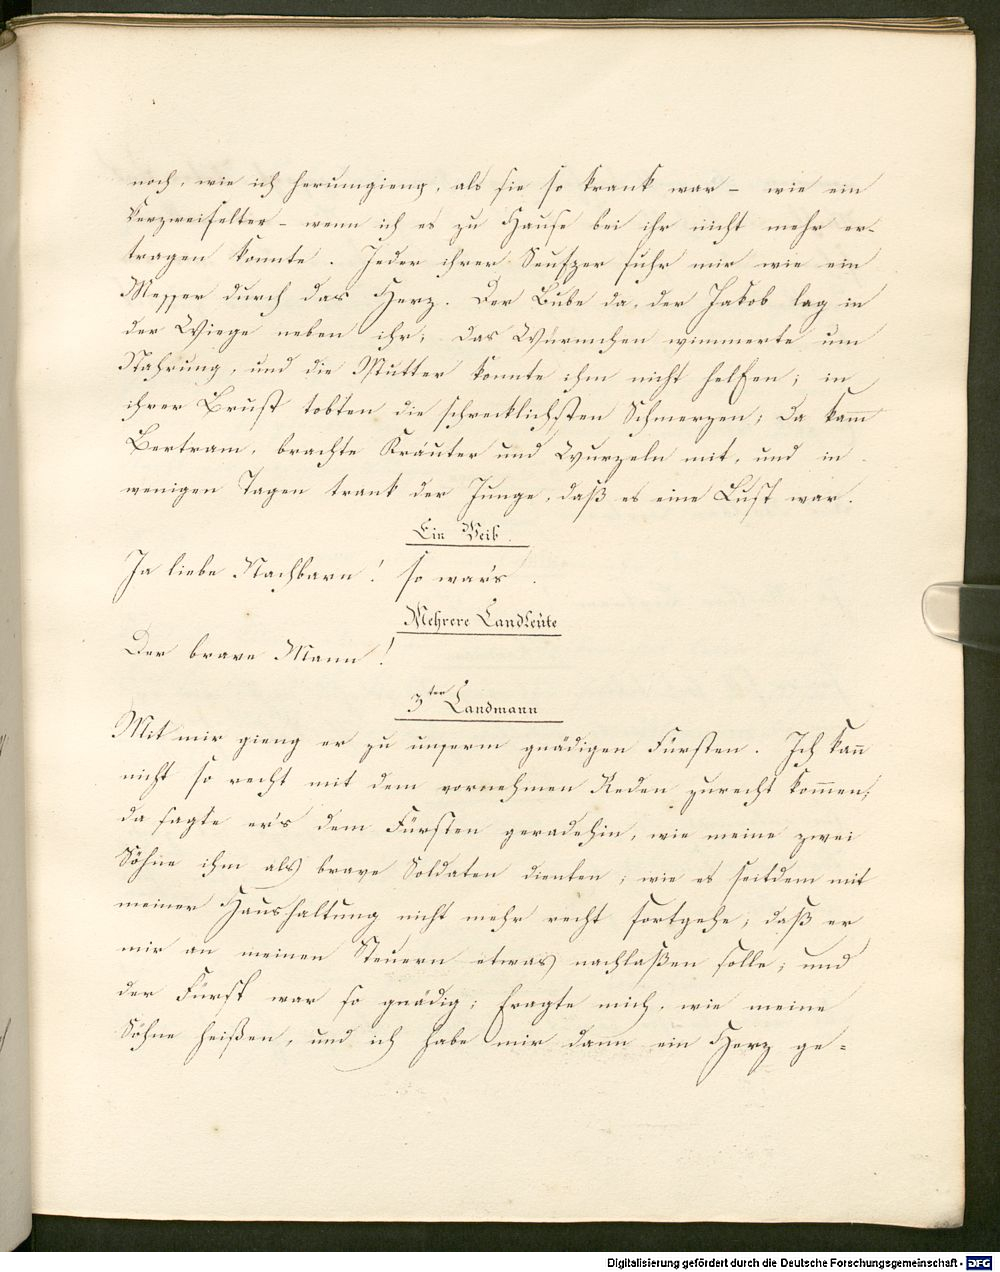 noch, wie ich herumgieng, als sie so krank war – wie ein
Verzweifelter – wenn ich es zu Hause bei ihr nicht mehr er-
tragen konnte. Jeder ihrer Seufzer fuhr mir wie ein
Messer durch das Herz. Der Bube da, der Jakob lag in
der Wiege neben ihr; das Würmchen wimmerte um
Nahrung, und die Mutter konnte ihm nicht helfen; in
ihrer Brust tobten die schrecklichsten Schmerzen; Da kam̅
Bertram, brachte Kräuter und Wurzeln mit, und in
wenigen Tagen trank der Junge, daß es eine Lust war.
Ein Weib.
Ja liebe Nachbarn! so war's.
Mehrere Landleüte
Der brave Mann!
3ter Landmann
Mit mir gieng er zu unserm gnädigen Fürsten. Ich kan̅
nicht so recht mit dem vornehmen Reden zurecht kom̅en;
da sagte er's dem Fürsten geradehin, wie meine zwei
Söhne ihm als brave Soldaten dienten; wie es seitdem mit
meiner Haushaltung nicht mehr recht fortgehe; daß er
mir an meinen Steuern etwas nachlaßen solle; und
der Fürst war so gnädig; fragte mich, wie meine
Söhne heißen, und ich habe mir dann ein Herz ge=
Digitalisierung gefördert durch die Deutsche Forschungsgemeinschaft - DFG